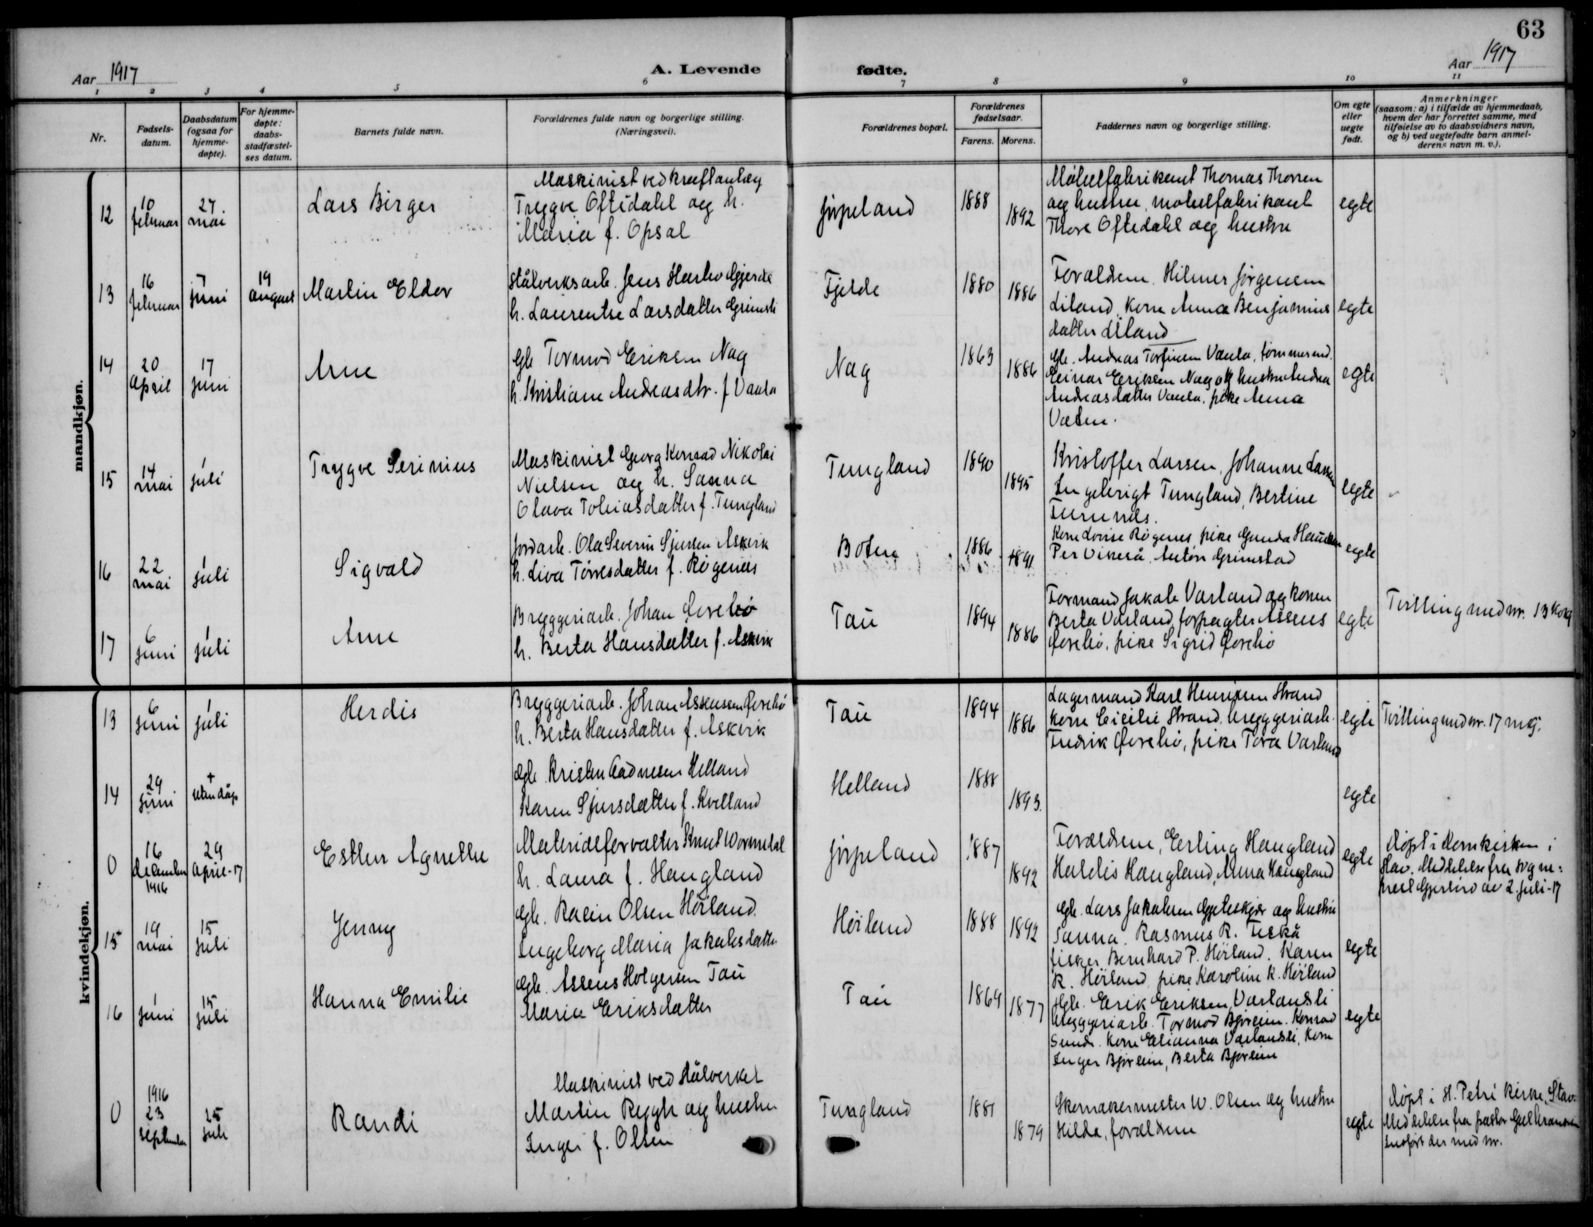 63
Aar 1917
A. Levende
fødte.
Aar 1917
1 2 3 4 5 6 7 8 9 10 11
Nr.
Fødsels-
datum.
Daabsdatum
(ogsaa for
hjemme-
døpte).
For hjemme-
døpte:
daabs-
stadfæstel-
ses datum.
Barnets fulde navn.
Forældrenes fulde navn og borgerlige stilling.
(Næringsvei).
Forældrenes bopæl.
Forældrenes
fødselsaar.
Farens. Morens.
Faddernes navn og borgerlige stilling.
Om egte
eller
uegte
født.
Anmerkninger
(saasom: a) i tilfælde av hjemmedaab,
hvem der har forrettet samme, med
tilføielse av to daabsvidners navn,
og b) ved uegtefødte barn anmel-
derens navn m. v.).
mandkjøn.
12
10
februar
27
mai
Lars Birger
Maskinist ved kraftanlæg
Trygve Oftidahl og h.
Maria f. Opsal
Jørpeland
1888
1892
Møbelfabrikant Thomas Thorsen
og hustru, møbelfabrikant
Thore Oftedahl og hustru
egte
13
16
februar
7
juni
19
august
Martin Eldor
Stålverksarb. Jens Gjerde
h. Laurentse Larsdatter
Fjelde
1880
1886
Forældrene. Hilmer Jørgensen
Liland, kone Anna Benjamins
datter Liland
egte
14
20
april
17
juni
Arne
Gb. Tormod Eriksen Nag
h. Kristiane Andreasdtr. f. Vaula
Nag
1863
1886
Gb. Andreas Torfinsen Vaula, tømmermd.
Einar Eriksen Nag og hustru Andrea
Andreasdatter Vaula, pike Anna
Vatne.
egte
15
14
mai
1
juli
Trygve Serinius
Maskinist Georg Konrad Nikolai
Nielsen og h. Sanna
Olava Tobiasdatter f. Tungland
Tungland
1890
1895
Kristoffer Larsen, Johanne Larsen
Ingebrigt Tungland, Bertine
egte
16
22
mai
1
juli
Sigvald
Jordarb. Ola Severin Sjursen Askvik
h. Liva Tørresdatter f. Røgenes
Botne
1886
1891
Kone Lovise Røgenes, pike Gunda
Per Vikeså, Anton Grimstad
egte
17
6
juni
1
juli
Arne
Bryggeriarb. Johan Øvrebø
h. Berta Hansdatter f. Askvik
Tau
1894
1886
Formand Jakob Varland og konen
Berta Varland, forpagter Assens
Øvrebø, pike Sigrid Øvrebø
egte
Tvilling med nr. 13 kvkj
kvindekjøn.
13
6
juni
1
juli
Herdis
Bryggeriarb. Johan Assensen Øvrebø
h. Berta Hansdatter f. Askvik
Tau
1894
1886
Lagermand Karl Henriksen Strand
Kone Cicilie Strand, bryggeriarb.
Fredrik Øvrebø, pike Tora Varland
egte
Tvilling med nr. 17 mkj.
14
29
juni
+
uten dåp
Gb. Kristen Aadnesen Helland
Karen Sjursdatter f. Kvelland
Helland
1888
1893
egte
0
16
december
1916
29
april-17
Esther Agnethe
Materialforvalter Knut Wormdal
h. Laura f. Haugland
Jørpeland
1887
1892
Forældrene, Erling Haugland
Haldis Haugland, Anna Haugland
egte
Døpt i domkirken i
Stav. Meddelelse fra sogne-
prest av 2. juli-17
15
19
mai
15
juli
Jenny
Gb. Rasmus Olsen Høiland
Ingeborg Maria Jakobsdatter
Høiland
1888
1892
Gb. Lars Jakobsen og hustru
Sanna. Rasmus R. Fiskå
fisker Bernhard P. Høiland. Karen
R. Høiland, pike Karoline K. Høiland
egte
16
1
juni
15
juli
Hanna Emilie
Gb. Assens Holgersen Tau
Maria Eriksdatter
Tau
1869
1877
Gb. Erik Eriksen Varlandsli
bryggeriarb. Tormod Bjøreim. Konrad
Sunde. Kone Elianna Varlandsli, kone
Inger Bjøreim, Berta Bjøreim
egte
0
1916
23
september
25
juli
Randi
Maskinist ved Stålverket
Martin Rygh og hustru
Inger f. Olsen
Tungland
1881
1879
Skomakermester W. Olsen og hustru
Hilda, forældrene
egte
Døpt i St. Petri kirke, Stav.
Meddelelse fra pastor
Indført der med nr.